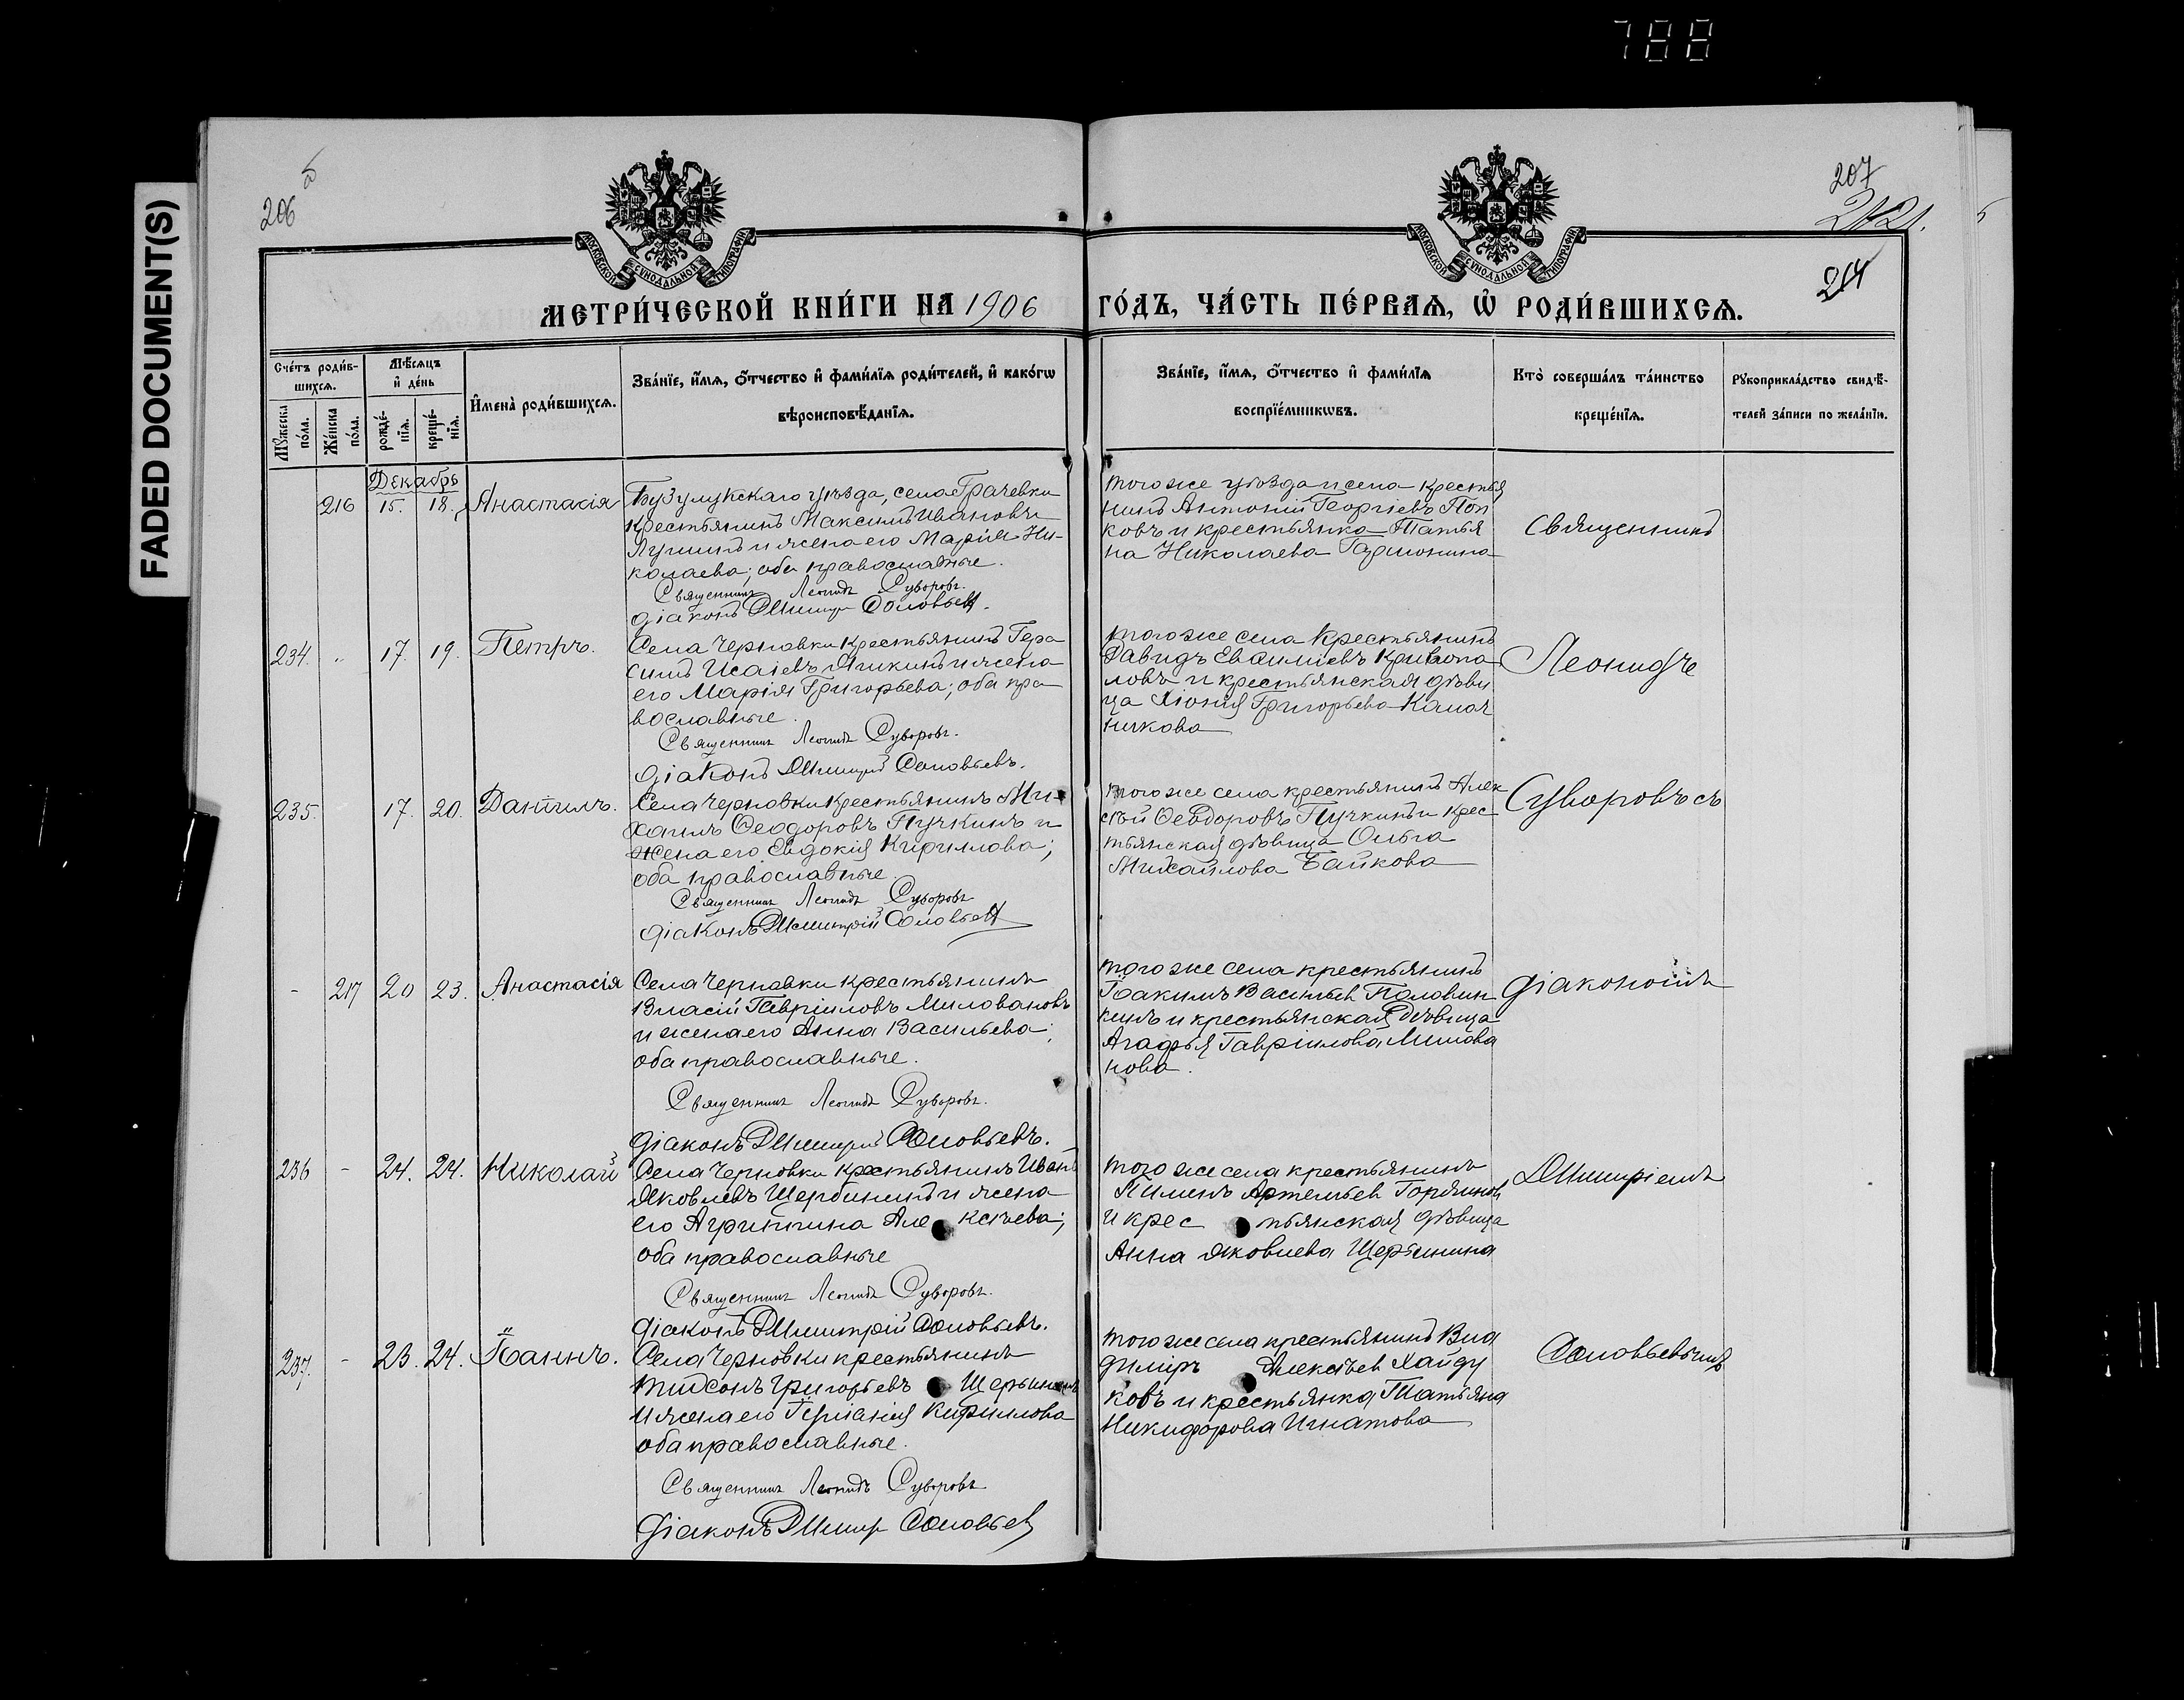 788
FADED DOCUMENT(S)
206
207
2121.
214
МОСКОВСКОЙ СѴНОДАЛЬНОЙ ТИПОГРАФІИ
МОСКОВСКОЙ СѴНОДАЛЬНОЙ ТИПОГРАФІИ
МЕТРИ́ЧЕСКОЙ КНИ́ГИ НА 1906
ГО́ДЪ, ЧА́СТЬ ПЕ́РВАѦ, Ѽ РОДИ́ВШИХСѦ.
Сче́тъ роди́в-
шихсѧ.
Мꙋжеска по́ла.
Же́нска по́ла.
Мѣ́сѧцъ
и҆ де́нь
рожде́-
нїѧ.
креще́-
нїѧ.
И҆мена̀ роди́вшихсѧ.
Зва́нїе, и҆́мѧ, ѻ҆́тчество и҆ фами́лїѧ роди́телей, и҆ како́гѡ
вѣроисповѣ́данїѧ.
Зва́нїе, и҆́мѧ, ѻ҆́тчество и҆ фами́лїѧ
воспрїе́мникѡвъ.
Кто̀ соверша́лъ та́инство
креще́нїѧ.
Рꙋкоприкла́дство свидѣ́-
телей за́писи по жела́нїю.
Декабрь
216 15. 18. Анастасія
Бузулукскаго уѣзда, села Грачевки
крестьянинъ Максимъ Ивановъ
Лушинъ и жена его Марія Ни-
колаева; оба православные.
Священникъ Леонидъ Суворовъ.
Діаконъ Димитр Соловьев.
того же уѣзда и села крестья
нинъ Антоній Георгіевъ Поп
ковъ и крестьянка Татья
на Николаева Гармонина
Священникъ
234. " 17. 19. Петръ.
Села Черновки крестьянинъ Гера
симъ Исаіевъ Яшкинъ и жена
его Марія Григорьева; оба пра
вославные.
Священникъ Леонидъ Суворовъ.
Діаконъ Димитрій Соловьевъ.
того же села крестьянинъ
Давидъ Евѳиміевъ Кривопа
ловъ и крестьянская дѣви
ца Хіонія Григорьева Калач
никова
Леонидъ
235. 17. 20. Даніилъ.
Села Черновки крестьянинъ Ми-
хаилъ Ѳеодоровъ Пучкинъ и
жена его Евдокія Кириллова;
оба православные.
Священникъ Леонидъ Суворовъ
Діаконъ Димитрій Соловьев
того же села крестьянинъ Алек
сѣй Ѳеодоровъ Пучкинъ и крес
тьянская дѣвица Ольга
Михайлова Байкова
Суворовъ съ
- 217 20 23. Анастасія
Села Черновки крестьянинъ
Власій Гавріиловъ Миловановъ
и жена его Анна Васильева;
оба православные.
Священникъ Леонидъ Суворовъ.
Діаконъ Димитрій Соловьевъ.
того же села крестьянинъ
Іоакимъ Васильев Половин
кинъ и крестьянская дѣвица
Агафья Гавріилова Милова
нова.
діакономъ
236 - 24. 24. Николай
Села Черновки крестьянинъ Иванъ
Яковлевъ Щербининъ и жена
его Агриппина Алексѣева;
оба православные
Священникъ Леонидъ Суворовъ.
Діаконъ Димитрій Соловьевъ.
того же села крестьянинъ
Пименъ Артемьев Горяинов
и крестьянская дѣвица
Анна Яковлева Щербинина
Димитріемъ
237. - 23. 24. Іоаннъ.
Села Черновки крестьянинъ
Тихонъ Григорьевъ Щербининъ
и жена его Кириллова
оба православные.
Священникъ Леонидъ Суворовъ
Діаконъ Димитр Соловьев
того же села крестьянинъ Вла
диміръ Алексѣев Хайду
ковъ и крестьянка Татьяна
Никифорова Игнатова
Соловьевымъ